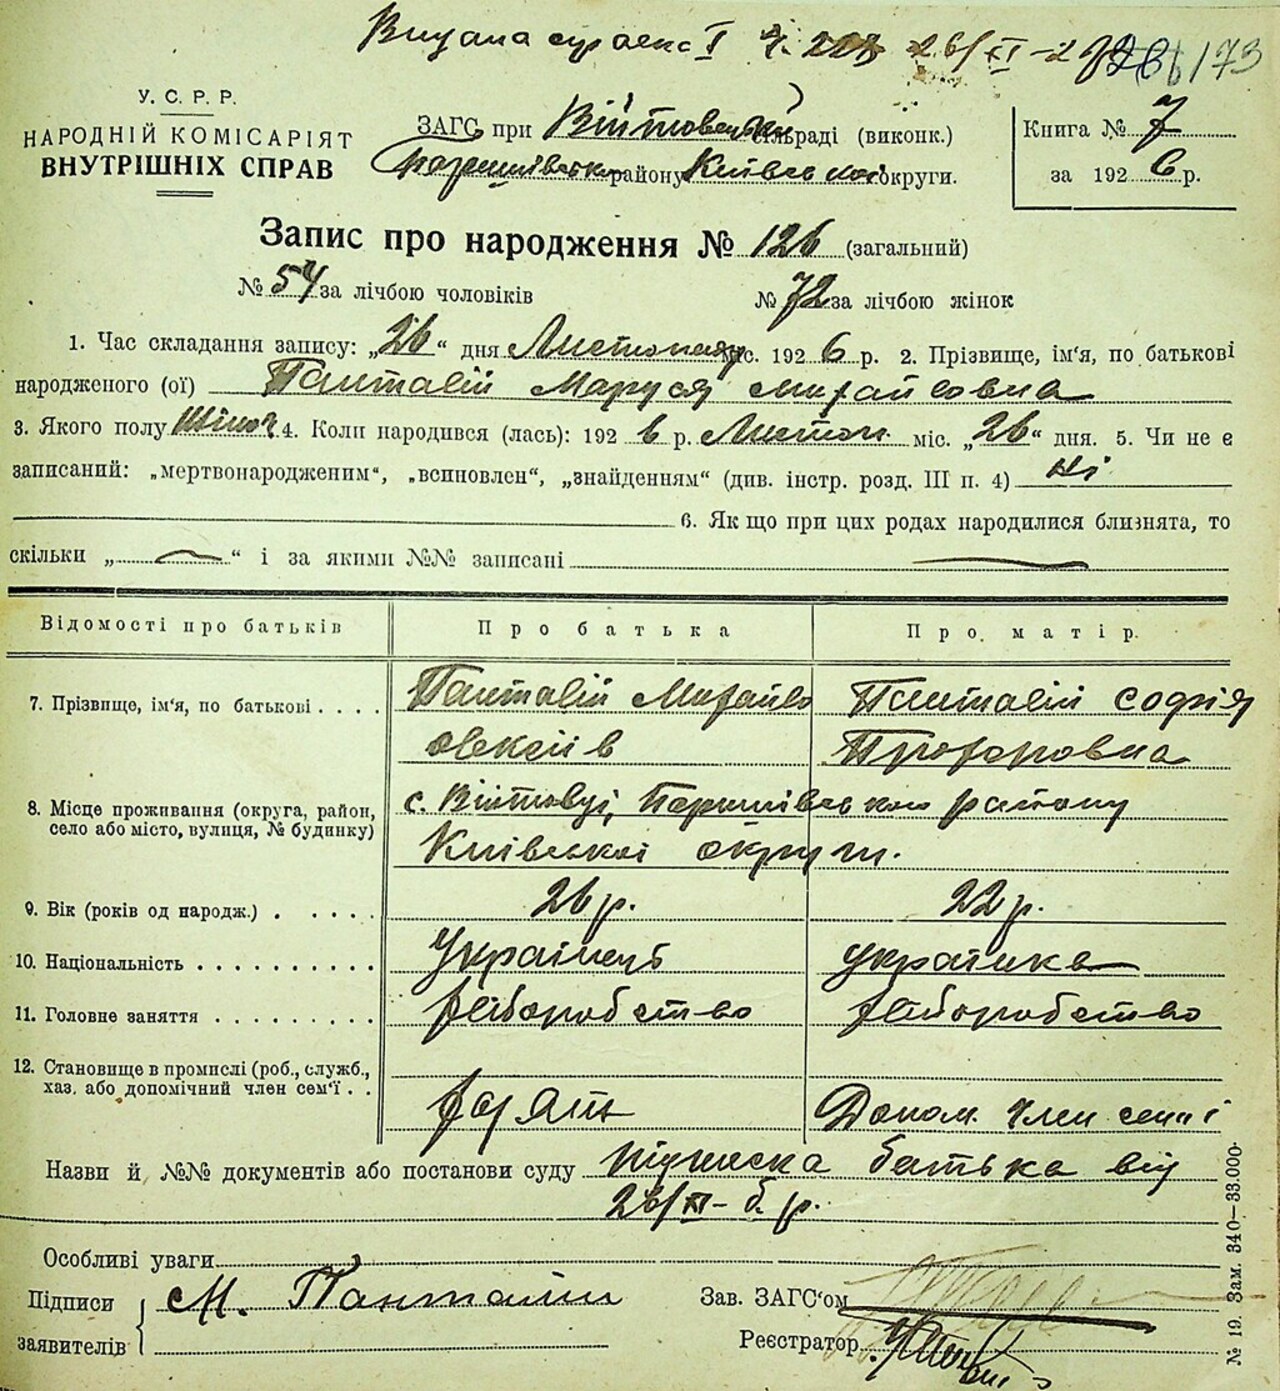 Видана
26/XI-
173
У. С. Р. Р.
НАРОДНІЙ КОМІСАРІЯТ
ВНУТРІШНІХ СПРАВ
ЗАГС при Війтовецькій сільраді (виконк.)
Баришівського району Київської округи.
Книга № 7
за 1926 р.
Запис про народження № 126 (загальний)
№ 54 за лічбою чоловіків
№ 72 за лічбою жінок
1. Час складання запису: „26“ дня Листопаду міс. 1926 р. 2. Прізвище, ім‘я, по батькові
народженого (ої) Панталій Маруся Михайловна
3. Якого полу Жіноч. 4. Коли народився (лась): 1926 р. Листоп. міс. „26“ дня. 5. Чи не є
записаний: „мертвонародженим“, „всиновлен“, „знайденням“ (див. інстр. розд. III п. 4) Ні
6. Як що при цих родах народилися близнята, то
скільки „ — “ і за якими №№ записані —
Відомості про батьків
Про батька
Про матір.
7. Прізвище, ім‘я, по батькові . . . .
Панталій Михайло
Панталій Софія
Олексіїв
Прохоровна
8. Місце проживання (округа, район,
село або місто, вулиця, № будинку)
с. Війтовці, Баришівського району
Київської округи.
9. Вік (років од народж.) . . . . .
26 р.
22 р.
10. Національність . . . . . . . . . .
Українець
Українка
11. Головне заняття . . . . . . . . .
Хліборобство
Хліборобство
12. Становище в промислі (роб., служб.,
хаз. або допомічний член сем‘ї . .
Хазяїн
Допом. член семї
Назви й №№ документів або постанови суду підписка батька від
26/XI- б. р.
Особливі уваги
Підписи
заявителів
М. Панталій
Зав. ЗАГС‘ом
Реєстратор
№ 19. Зам. 340—33.000.